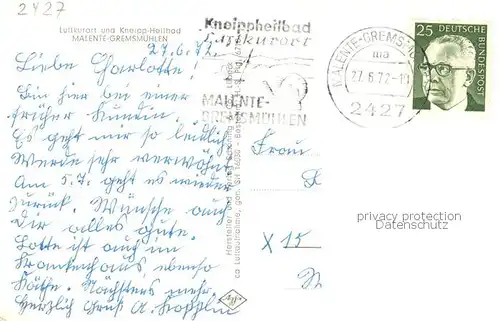 2427
Luftkurort und Kneipp-Heilbad
MALENTE-GREMSMÜHLEN
27.6.72.
Liebe Charlotte!
Bin hier bei einer
früher Kundin.
Es geht mir so leidlich
Werde sehr verwöhnt
Am 5.7. geht es wieder
zurück. Wünsche auch
Dir alles gute.
Lotte ist auch im
Krankenhaus ebenso
Käthe. Nächstens mehr
Herzlich Gruß A.
Kneippheilbad
Luftkurort
MALENTE-
GREMSMÜHLEN
MALENTE-GREMS
ma
27.6.72
2427
25
DEUTSCHE
BUNDESPOST
Frau
X 15
privacy protection
Datenschutz